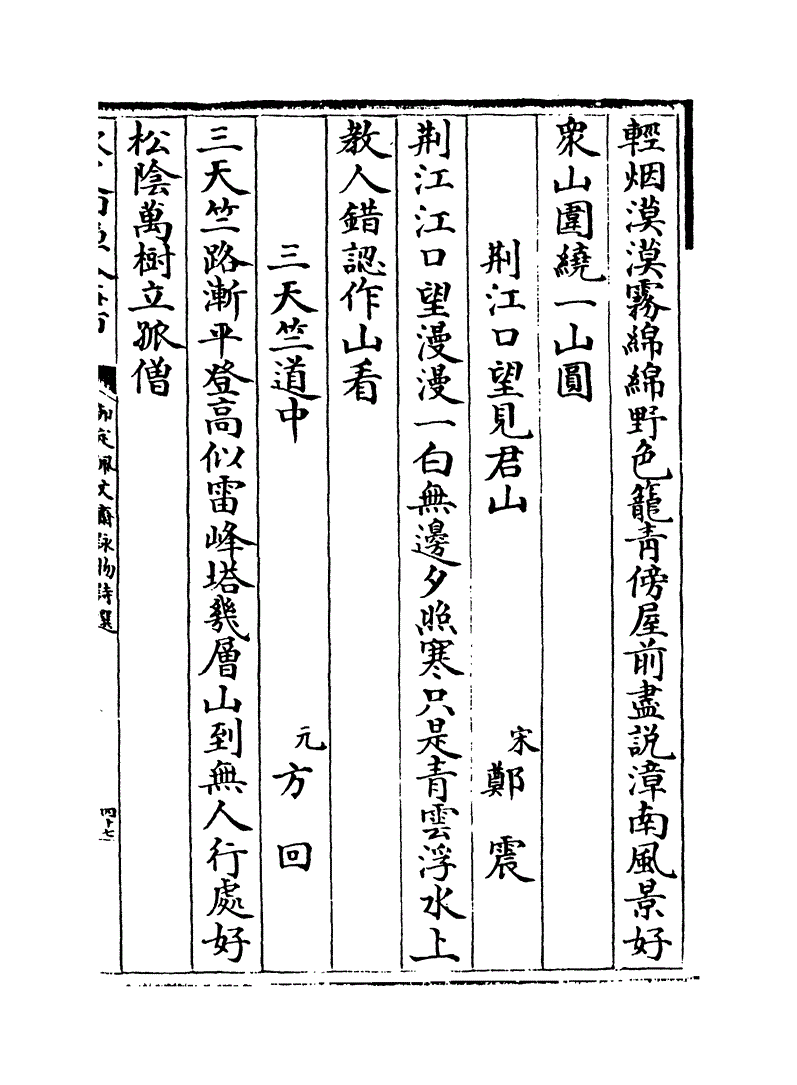 輕烟漠漠霧綿綿野色籠青傍屋前盡説漳南風景好
衆山圍繞一山圓
荆江口望見君山
宋鄭震
荆江江口望漫漫一白無邊夕照寒只是青雲浮水上
教人錯認作山看
三天竺道中
元方回
三天竺路漸平登高似雷峰塔幾層山到無人行處好
松陰萬樹立孤僧
御定佩文齋詠物詩選
四十七